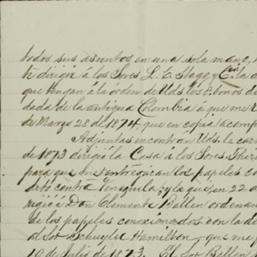 todos sus asuntos en una sola mano,
te dirigir á los Sres. L. E. Hagg y Cía
que tengan á la orden de Uds. los libros
dada de la antigua Colombia á que me
de Marzo 28 de 1874, que en copia acomp
Adjuntas encontrarán Uds. la car
de 1873 dirigió la Casa á los Sres.
para que entregasen los papeles
contra Venezuela; y la que en 22
á Don Clemente Ballen ordenan
de los papeles conexionados con la de
del Sor. Schuyler Hamilton, que me
10 de Julio de 1873. El Sor. Ballen